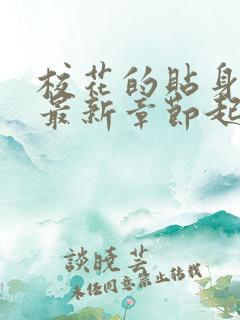 校花的貼身
最新章節起
談曉芸
未经同意禁止转载